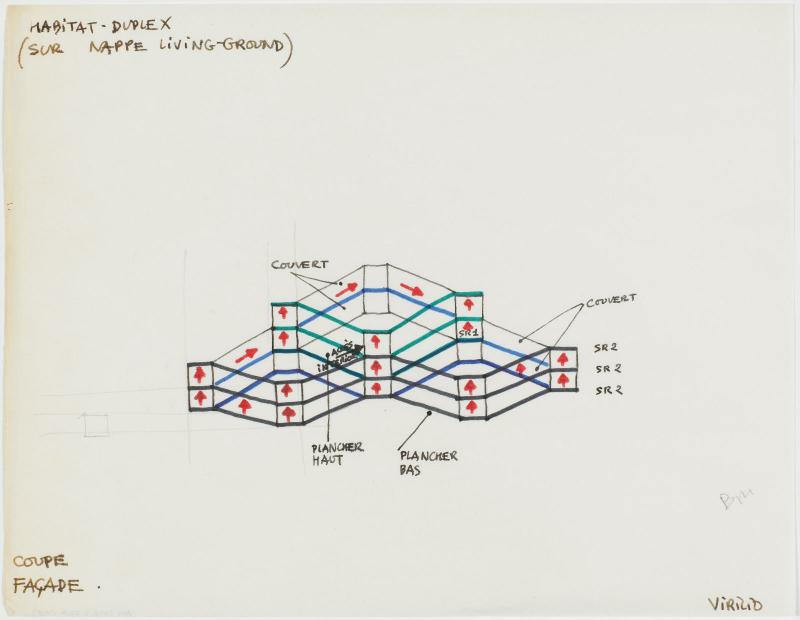 HABITAT-DUPLEX
(SUR NAPPE LIVING-GROUND)
COUVERT
COUVERT
SR1
ACCÈS
INTÉRIEUR
SR2
SR2
SR2
PLANCHER
HAUT
PLANCHER
BAS
COUPE
FAÇADE.
VIRILIO